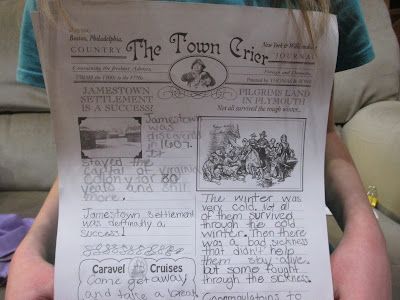 Boston, Philadelphia,
COUNTRY
The Town Crier
New York & Williamsburg
JOURNAL
Containing the freshest Advices,
Foreign and Domestic
FROM the 1600s to the 1770s.
JAMESTOWN
SETTLEMENT
IS A SUCCESS!
Jamestown
was
discovered
in 1607.
It
stayed the
capital of virginia
colony for 80
years and still
more.
Jamestown settlement
was definatly a
success!
Caravel Cruises
Come get away
and take a break
PILGRIMS LAND
IN PLYMOUTH
Not all survived the rough winter...
The winter was
very cold. Not all
of them survived
through the cold
winter. Then there
was a bad sickness
that didn't help
them stay alive.
but some fought
through the sickness.
Congratulations to